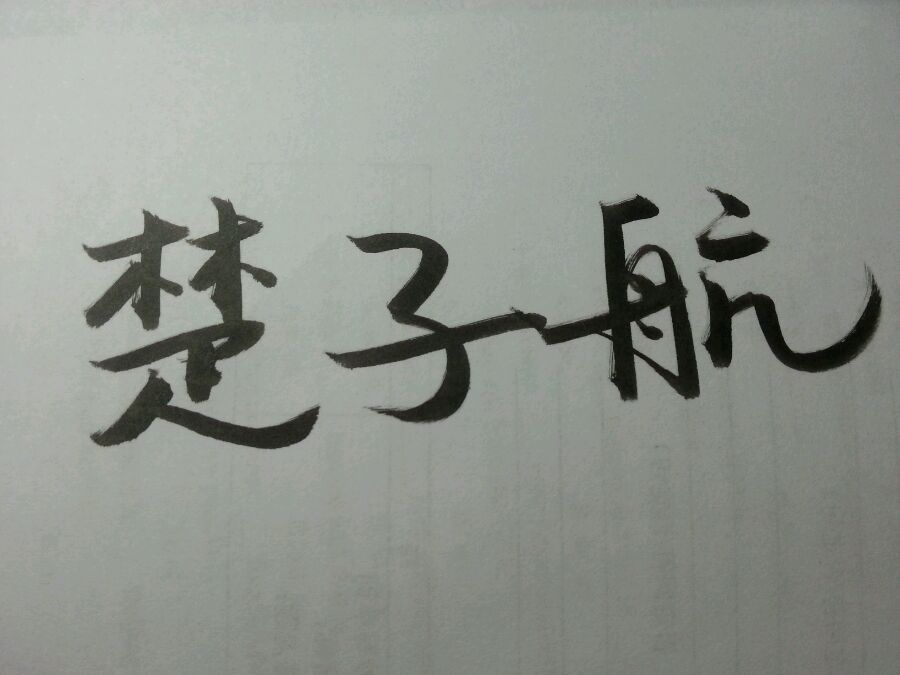 楚子航